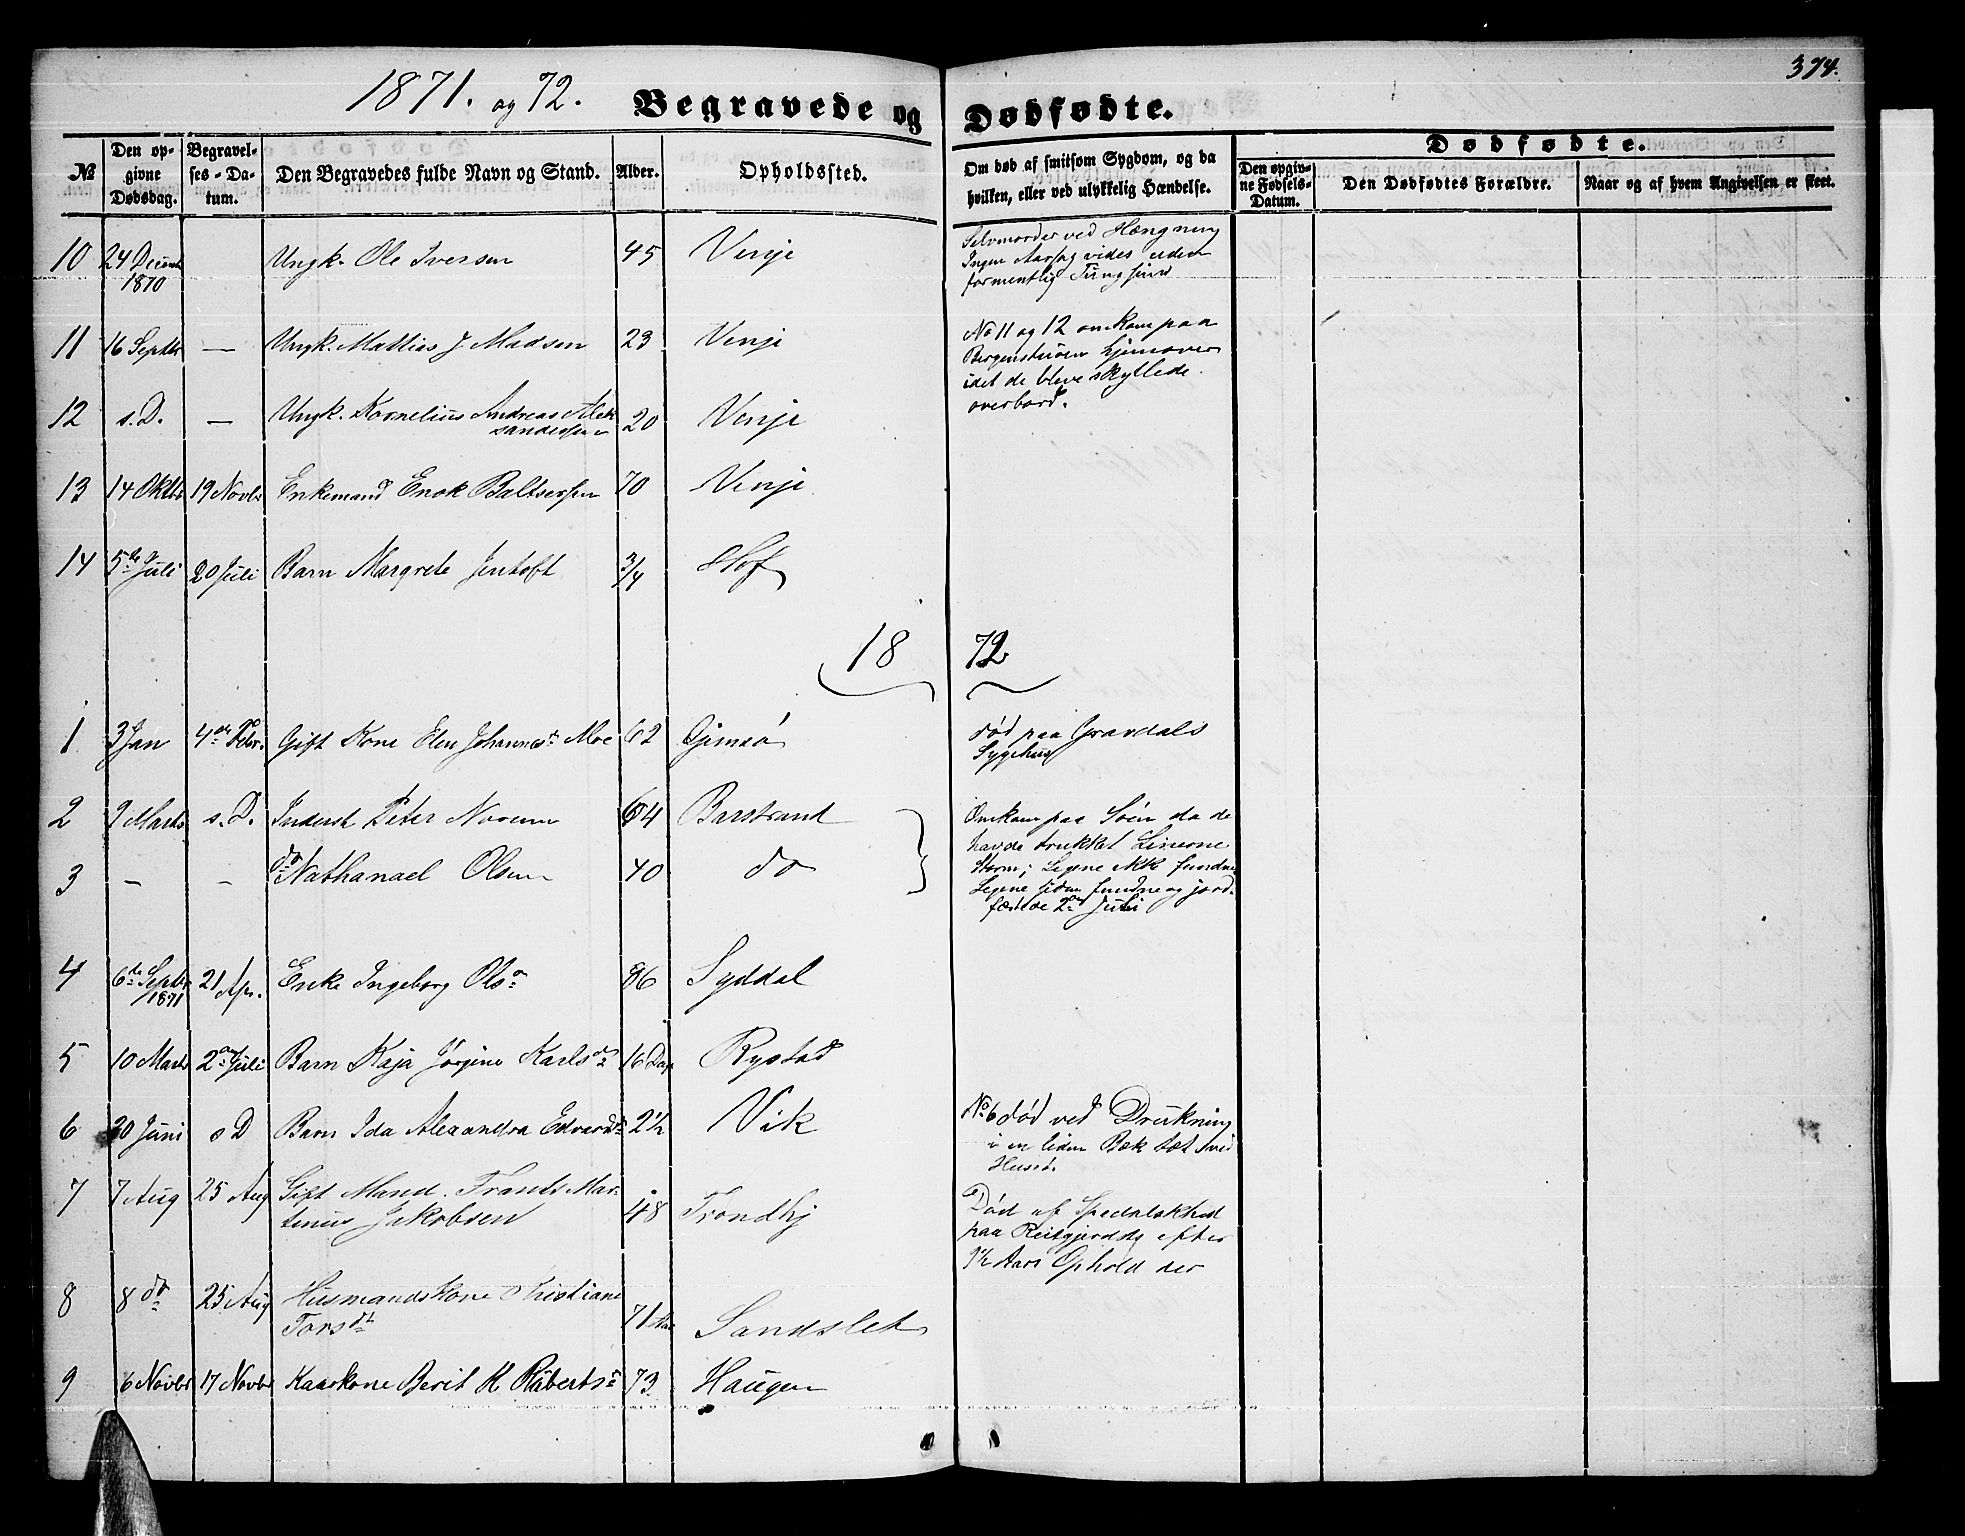 374.
1871. og 72. Begravede og Dødfødte.
№
Den opgivne Dødsdag.
Begravelses-Datum.
Den Begravedes fulde Navn og Stand.
Alder.
Opholdssted.
Om død af smitsom Sygdom, og da hvilken, eller ved ulykkelig Hændelse.
Dødfødte.
Den opgivne Fødsels-Datum.
Den Dødfødtes Forældre.
Naar og af hvem Angivelsen er skeet.
10 24 Decemb 1870 Ungk. Ole Iversen 45 Venje
Selvmorder ved Hængning
Ingen Aarsag vides uden
formentlig Tungsind
11 16 Septbr — Ungk. Mathias J. Madsen 23 Venje
No 11 og 12 omkom paa
Bergensturen hjemover
idet de bleve skyllede
overbord.
12 s. D. — Ungk. Kornelius Andreas Alek
sandersen 20 Venje
13 14 Oktbr 19 Novbr Enkemand Enok Baltsersen 70 Venje
14 5te Juli 20 Juli Barn Margrete Jentoft 3/4 Hof
18 72
1 3 Jan 4de Febr. Gift Kone Elen Johannesd. Moe 62 Gimsø
død paa Gravdals
Sygehus
2 9 Marts s. D. Inderst Peter Norum 64 Barstrand
3 — — do Nathanael Olsen 40 do
Omkom paa Søen da de
havde trukket Linerne
Storm; Ligene ikke fundne
Ligene siden fundne og jord-
fæstede 2den Juli
4 6te Septbr 1871 21 Apr. Enke Ingeborg Olsd. 86 Syddal
5 10 Marts 2den Juli Barn Kaja Jørgine Karlsd. 16 Dage Rystad
6 20 Juni s D Barn Ida Alexandra Edvardsd. 2 1/2 Vik
No 6 død ved Drukning
i en liden Bæk tæt ved
Huset.
7 7 Aug 25 Aug Gift Mand. Frants Mar-
tinus Jakobsen 48 Trondhj
Død af Spedalskhed
paa Reitgjerdet efter
9 1/2 Aars Ophold der
8 8 do 25 Aug Husmandskone Kristiane
Torsdt 71 Sandslet
9 6 Novbr 17 Novbr Kaarkone Berit K Robertsd. 73 Haugen